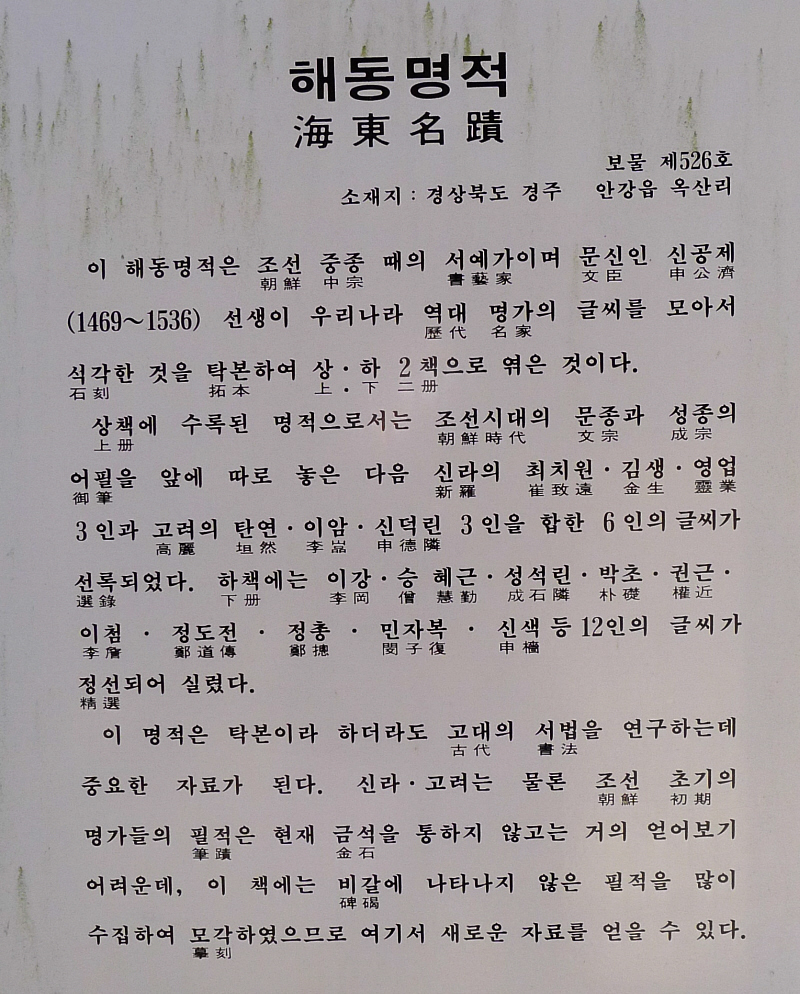 해동명적
海東名蹟
보물 제526호
소재지 : 경상북도 경주 안강읍 옥산리
이 해동명적은 조선 중종 때의 서예가이며 문신인 신공제
朝鮮 中宗 書藝家 文臣 申公濟
(1469~1536) 선생이 우리나라 역대 명가의 글씨를 모아서
歷代 名家
석각한 것을 탁본하여 상·하 2책으로 엮은 것이다.
石刻 拓本 上·下 二册
상책에 수록된 명적으로서는 조선시대의 문종과 성종의
上册 朝鮮時代 文宗 成宗
어필을 앞에 따로 놓은 다음 신라의 최치원·김생·영업
御筆 新羅 崔致遠 金生 靈業
3인과 고려의 탄연·이암·신덕린 3인을 합한 6인의 글씨가
高麗 坦然 李嵓 申德隣
선록되었다. 하책에는 이강·승 혜근·성석린·박초·권근·
選錄 下册 李岡 僧 慧勤 成石隣 朴礎 權近
이첨 · 정도전 · 정총 · 민자복 · 신색 등 12인의 글씨가
李詹 鄭道傳 鄭摠 閔子復 申穡
정선되어 실렸다.
精選
이 명적은 탁본이라 하더라도 고대의 서법을 연구하는데
古代 書法
중요한 자료가 된다. 신라·고려는 물론 조선 초기의
朝鮮 初期
명가들의 필적은 현재 금석을 통하지 않고는 거의 얻어보기
筆蹟 金石
어려운데, 이 책에는 비갈에 나타나지 않은 필적을 많이
碑碣
수집하여 모각하였으므로 여기서 새로운 자료를 얻을 수 있다.
摹刻